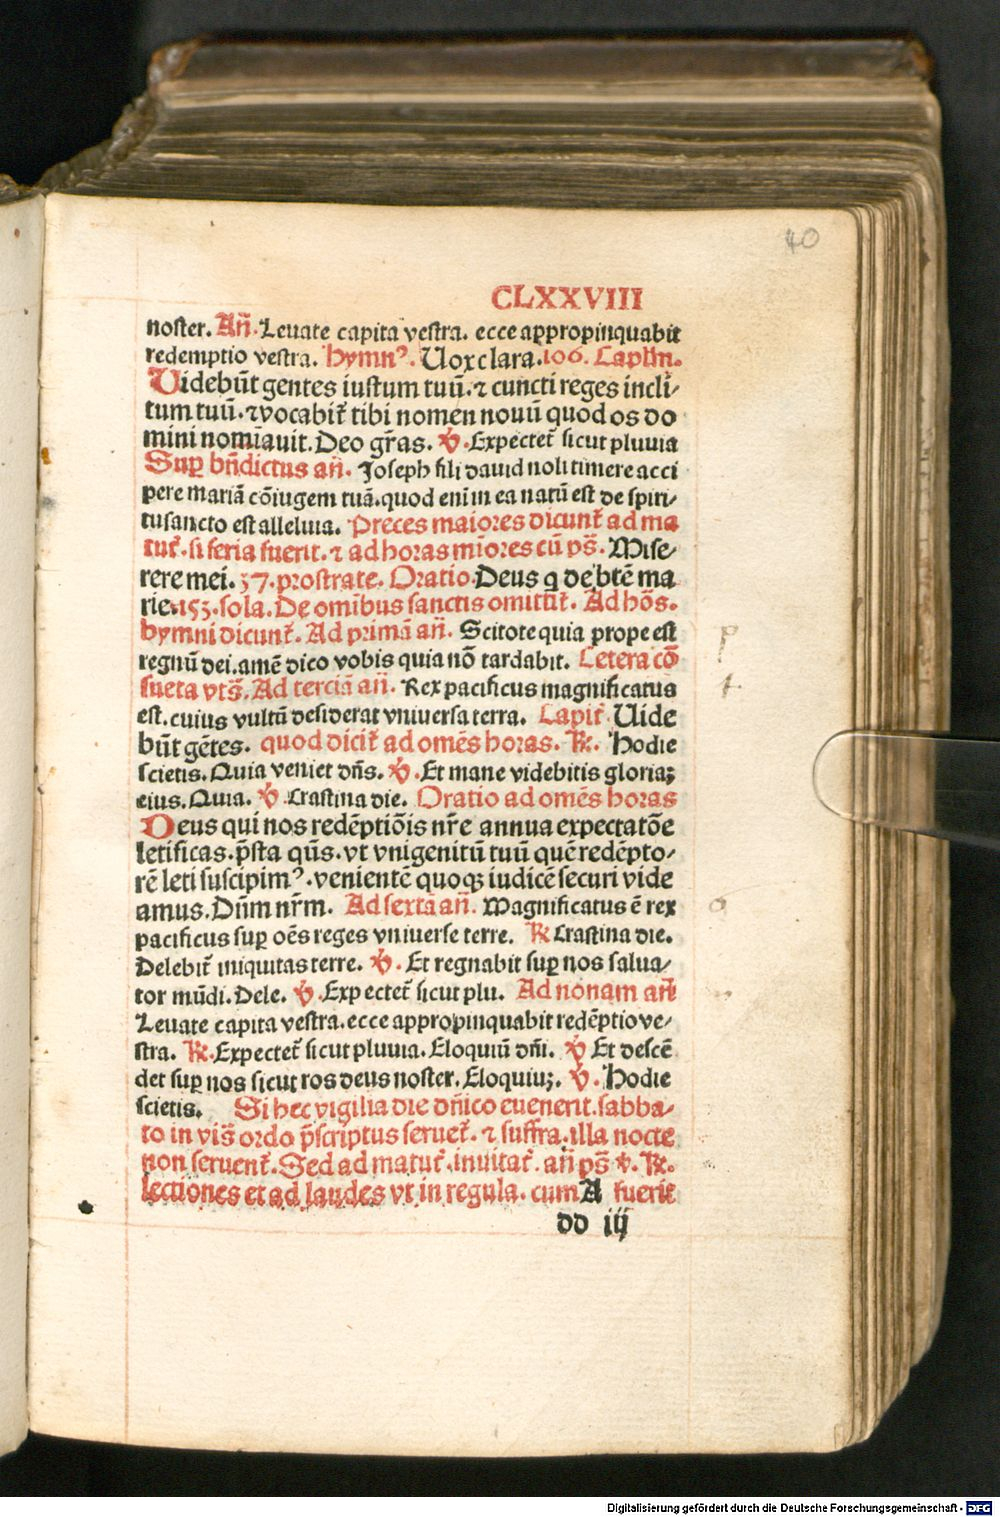 40
CLXXVIII
noster. Añ. Leuate capita vestra. ecce appropinquabit
redemptio vestra. hymnꝰ. Uox clara. 106. Caplm̄.
Uidebūt gentes iustum tuū. ⁊ cuncti reges incli/
tum tuū. ⁊ vocabit̃ tibi nomen nouū quod os do
mini nomīauit. Deo gr̄as. ℣. Expectet̃ sicut pluuia
Suꝑ bn̄dictus añ. Joseph fili dauid noli timere acci
pere mariā cōiugem tuā. quod enī in ea natū est de spiri/
tu sancto est alleluia. Preces maiores dicunt̃ ad ma
tut̃. si feria fuerit. ⁊ ad horas mīores cū ps̄. Mise/
rere mei. 37. prostrate. Oratio. Deus q de btē ma
rie. 153. sola. De omībus sanctis omittit̃. Ad hōs.
hymni dicunt̃. Ad primā añ. Scitote quia prope est
regnū dei. amē dico vobis quia nō tardabit. Cetera cō
sueta vts̄. Ad terciā añ. Rex pacificus magnificatus
est. cuius vultū desiderat vniuersa terra. Capit̃ Uide
būt gētes. quod dicit̃ ad omēs horas. ℟. Hodie
scietis. Quia veniet dn̄s. ℣. Et mane videbitis gloriaꝫ
eius. Quia. ℣ Crastina die. Oratio ad omēs horas
Deus qui nos redēptiōis nr̄e annua expectatōe
letificas. p̄sta qūs. vt vnigenitū tuū quē redēpto/
rē leti suscipimꝰ. venientē quoqꝫ iudicē securi vide
amus. Dn̄m nr̄m. Ad sextā añ. Magnificatus ē rex
pacificus suꝑ oēs reges vniuerse terre. ℟ Crastina die.
Delebit̃ iniquitas terre. ℣. Et regnabit suꝑ nos salua/
tor mūdi. Dele. ℣. Expectet̃ sicut plu. Ad nonam añ
Leuate capita vestra. ecce appropinquabit redēptio ve/
stra. ℟. Expectet̃ sicut pluuia. Eloquiū dn̄i. ℣ Et descē
det suꝑ nos sicut ros deus noster. Eloquiuꝫ. ℣. Hodie
scietis. Si hec vigilia die dn̄ico euenerit. sabba/
to in vīs ordo p̄scriptus seruet̃. ⁊ suffra. illa nocte
non seruent̃. Sed ad matut̃. inuitat̃. añ ps̄ ℣. ℟.
lectiones et ad laudes vt in regula. cum A fuerit
dd iij
p
t
Digitalisierung gefördert durch die Deutsche Forschungsgemeinschaft - DFG